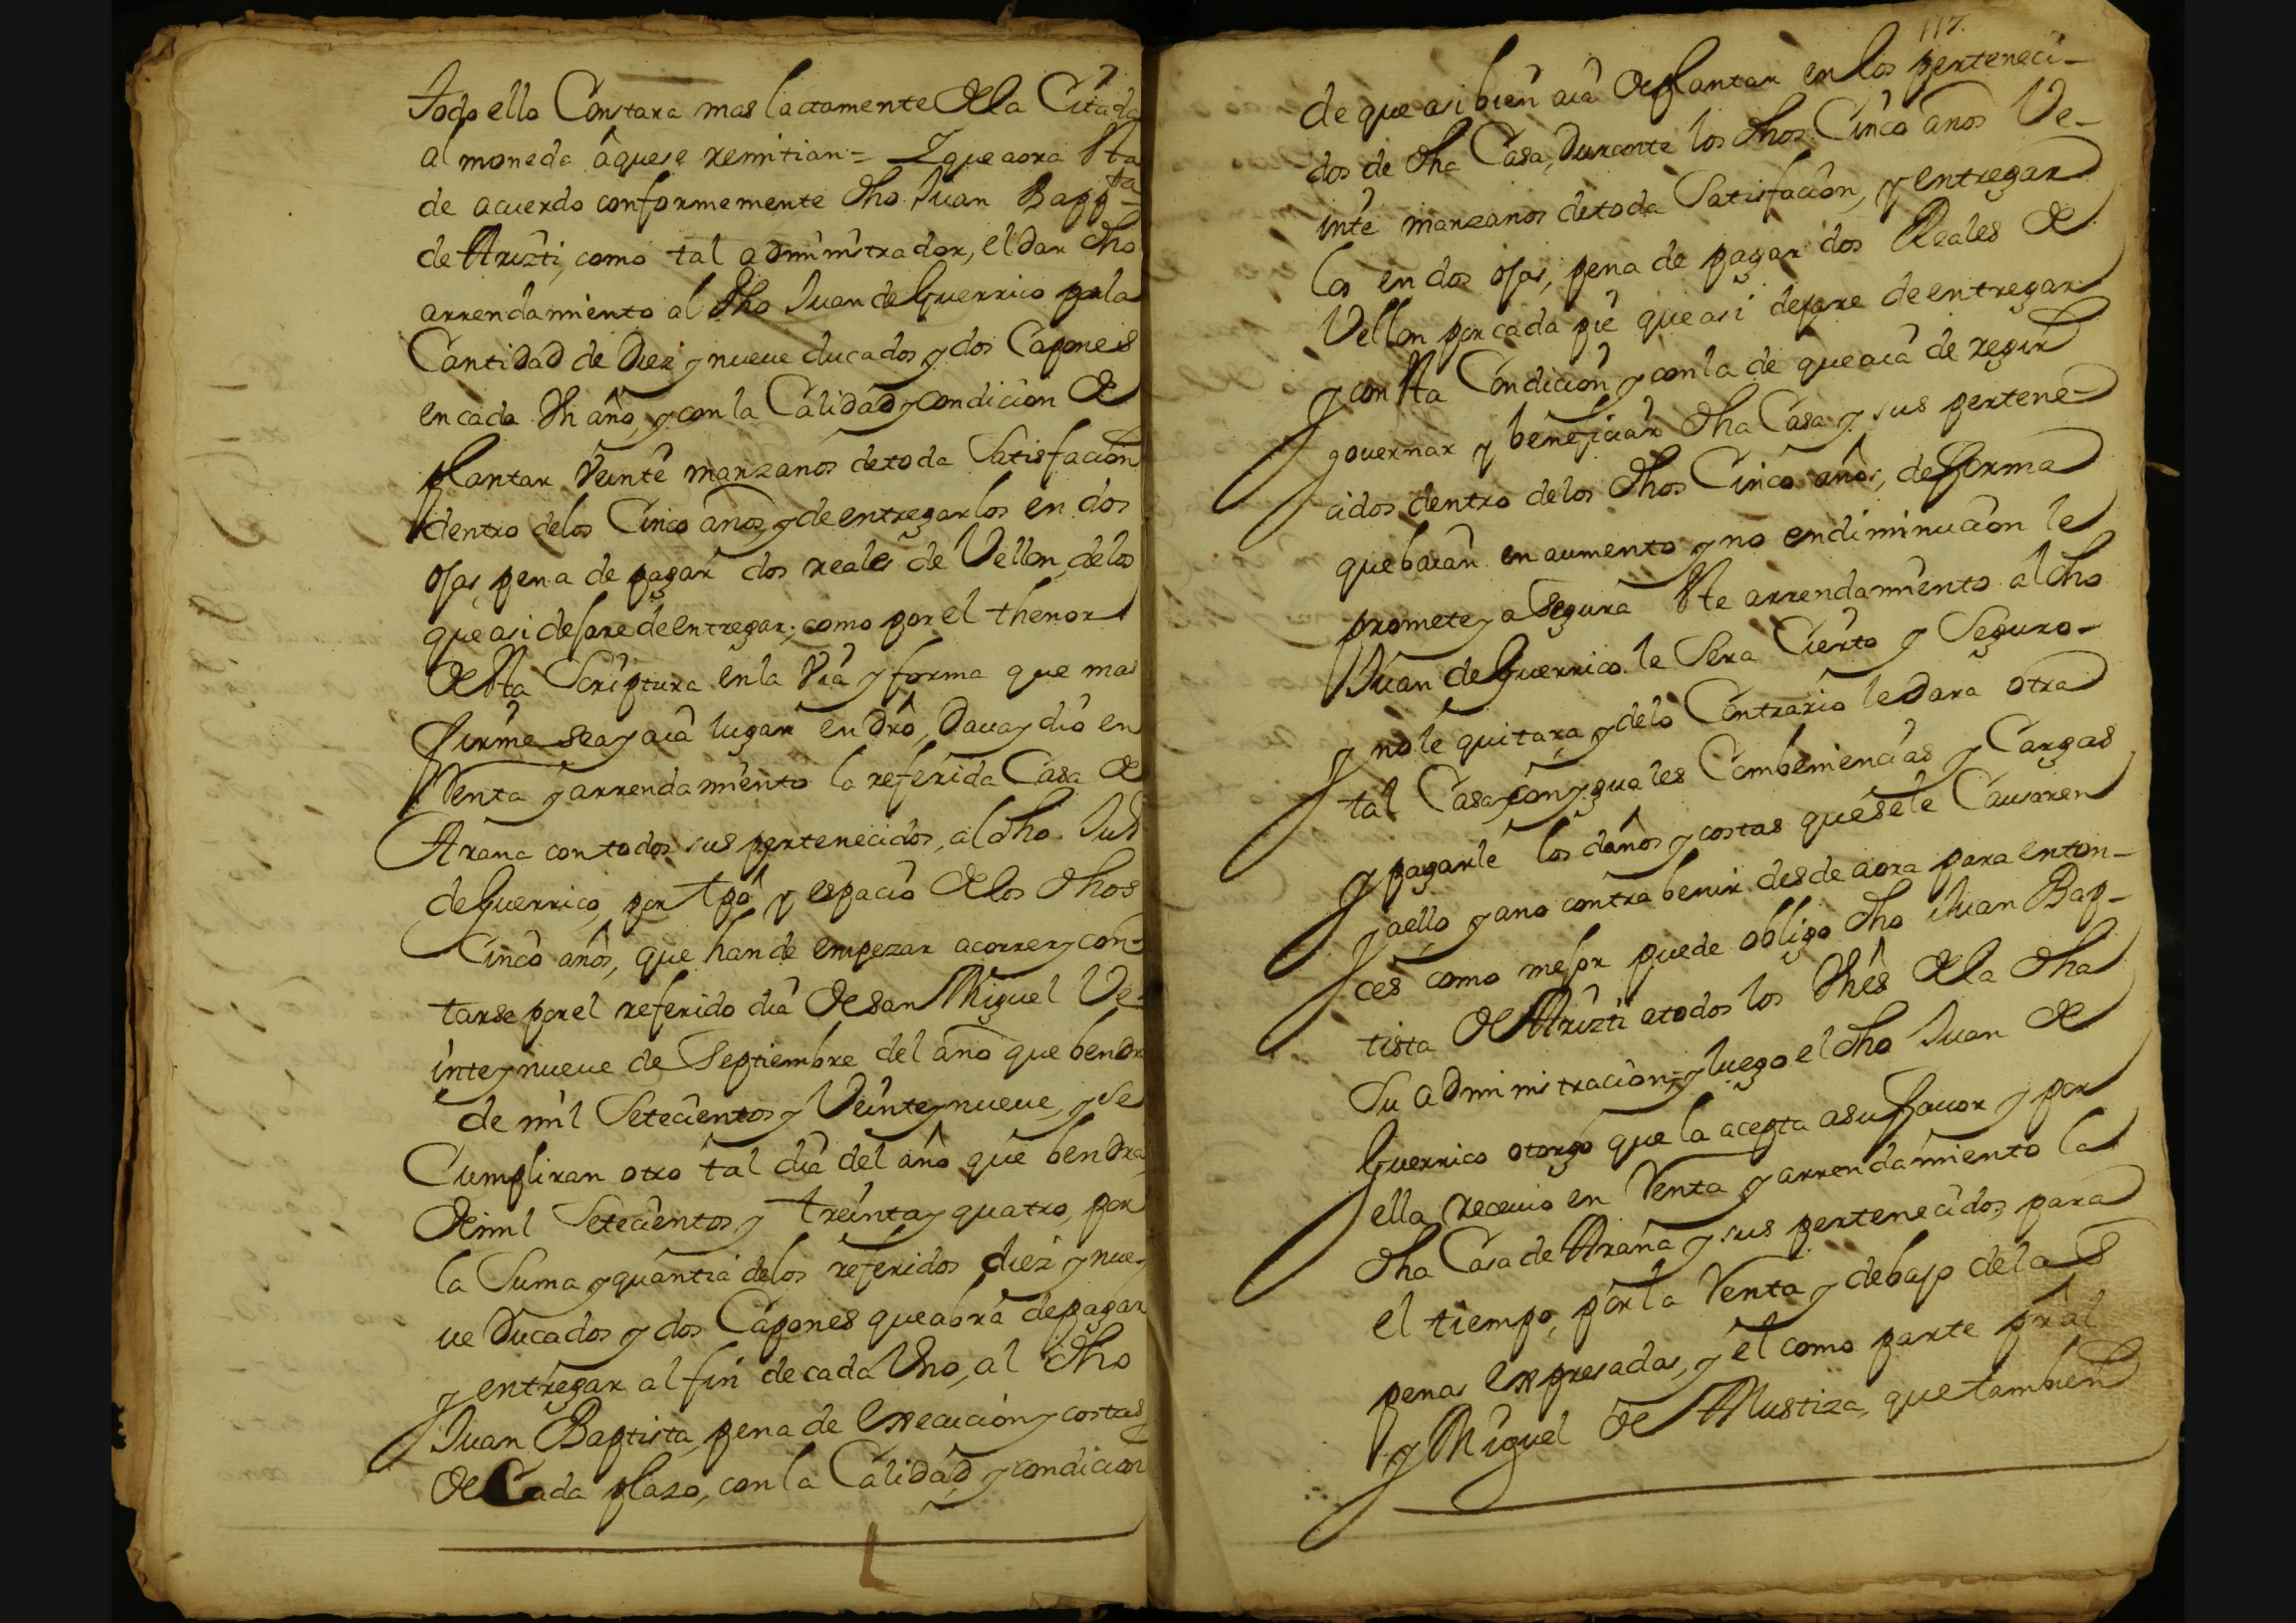 todo ello Constara mas lactamente de la Citada
almoneda â que se remitian = Y que aora esta
de acuerdo conformemente dho Juan Bapp.ta
de Aruzti, como tal administrador, el dar dho
arrendamiento al dho Juan de Guerrico por la
Cantidad de Diez y nueue ducados y dos Capones
en cada Un año, y con la Calidad y condicion de
plantar Veinte manzanos de toda Satisfacion
dentro de los Cinco años y de entregarlos en dos
ojas, pena de pagar dos reales de Vellon, de los
que asi dejare de entregar; como por el thenor
de esta Scriptura en la Via y forma que mas
firme sea y aia lugar en Dro, Daua y dio en
Renta y arrendamiento la referida Casa de
Arana con todos sus pertenecidos, al dho Juº
de Guerrico, por tpo y espacio de los dhos
Cinco años, que han de empezar a correr y con-
tarse por el referido dia de san Miguel Ve-
inte y nueue de Septiembre del año que bendra
de mil Setecientos y Veinte y nueue, y se
Cumpliran otro tal dia del año que bendra
de mil Setecientos y treinta y quatro, por
la Suma y quantia de los referidos diez y nue-
ue Ducados y dos Capones que abra de pagar
y entregar al fin de cada Uno, al dho
Juan Baptista, pena de execucion y costas
de Cada plazo, con la Calidad, y condicion
117.
de que asi bien aia de plantar en los perteneci-
dos de dha Casa, Durante los dhos Cinco años Ve-
inte manzanos de toda Satisfacion, y entregar
los en dos ojas, pena de pagar dos Reales de
Vellon por cada pie que asi dejare de entregar
y con esta Condicion y con la de que aia de regir
gouernar y beneficiar dha Casa y sus pertene-
cidos dentro de los dhos Cinco años, de forma
que baian en aumento y no en diminucion le
promete y asegura este arrendamiento al dho
Juan de Guerrico le Sera Cierto y Seguro-
y no le quitara y de lo Contrario le dara otra
tal Casa con yguales Combeniencias y Cargas
y pagarle los daños y costas que se le Causaren
y a ello y a no contrabenir desde aora para enton-
ces como mejor puede obligo dho Juan Bap-
tista de Aruzti a todos los Vnes de la dha
Su administracion; y luego el dho Juan de
Guerrico otorgo que la acepta a su fauor y por
ella receuio en Renta y arrendamiento la
dha Casa de Arana y sus pertenecidos para
el tiempo, por la Renta y debajo de las
penas expresadas, y el como parte prãl
y Miguel de Mustiza, que tambien